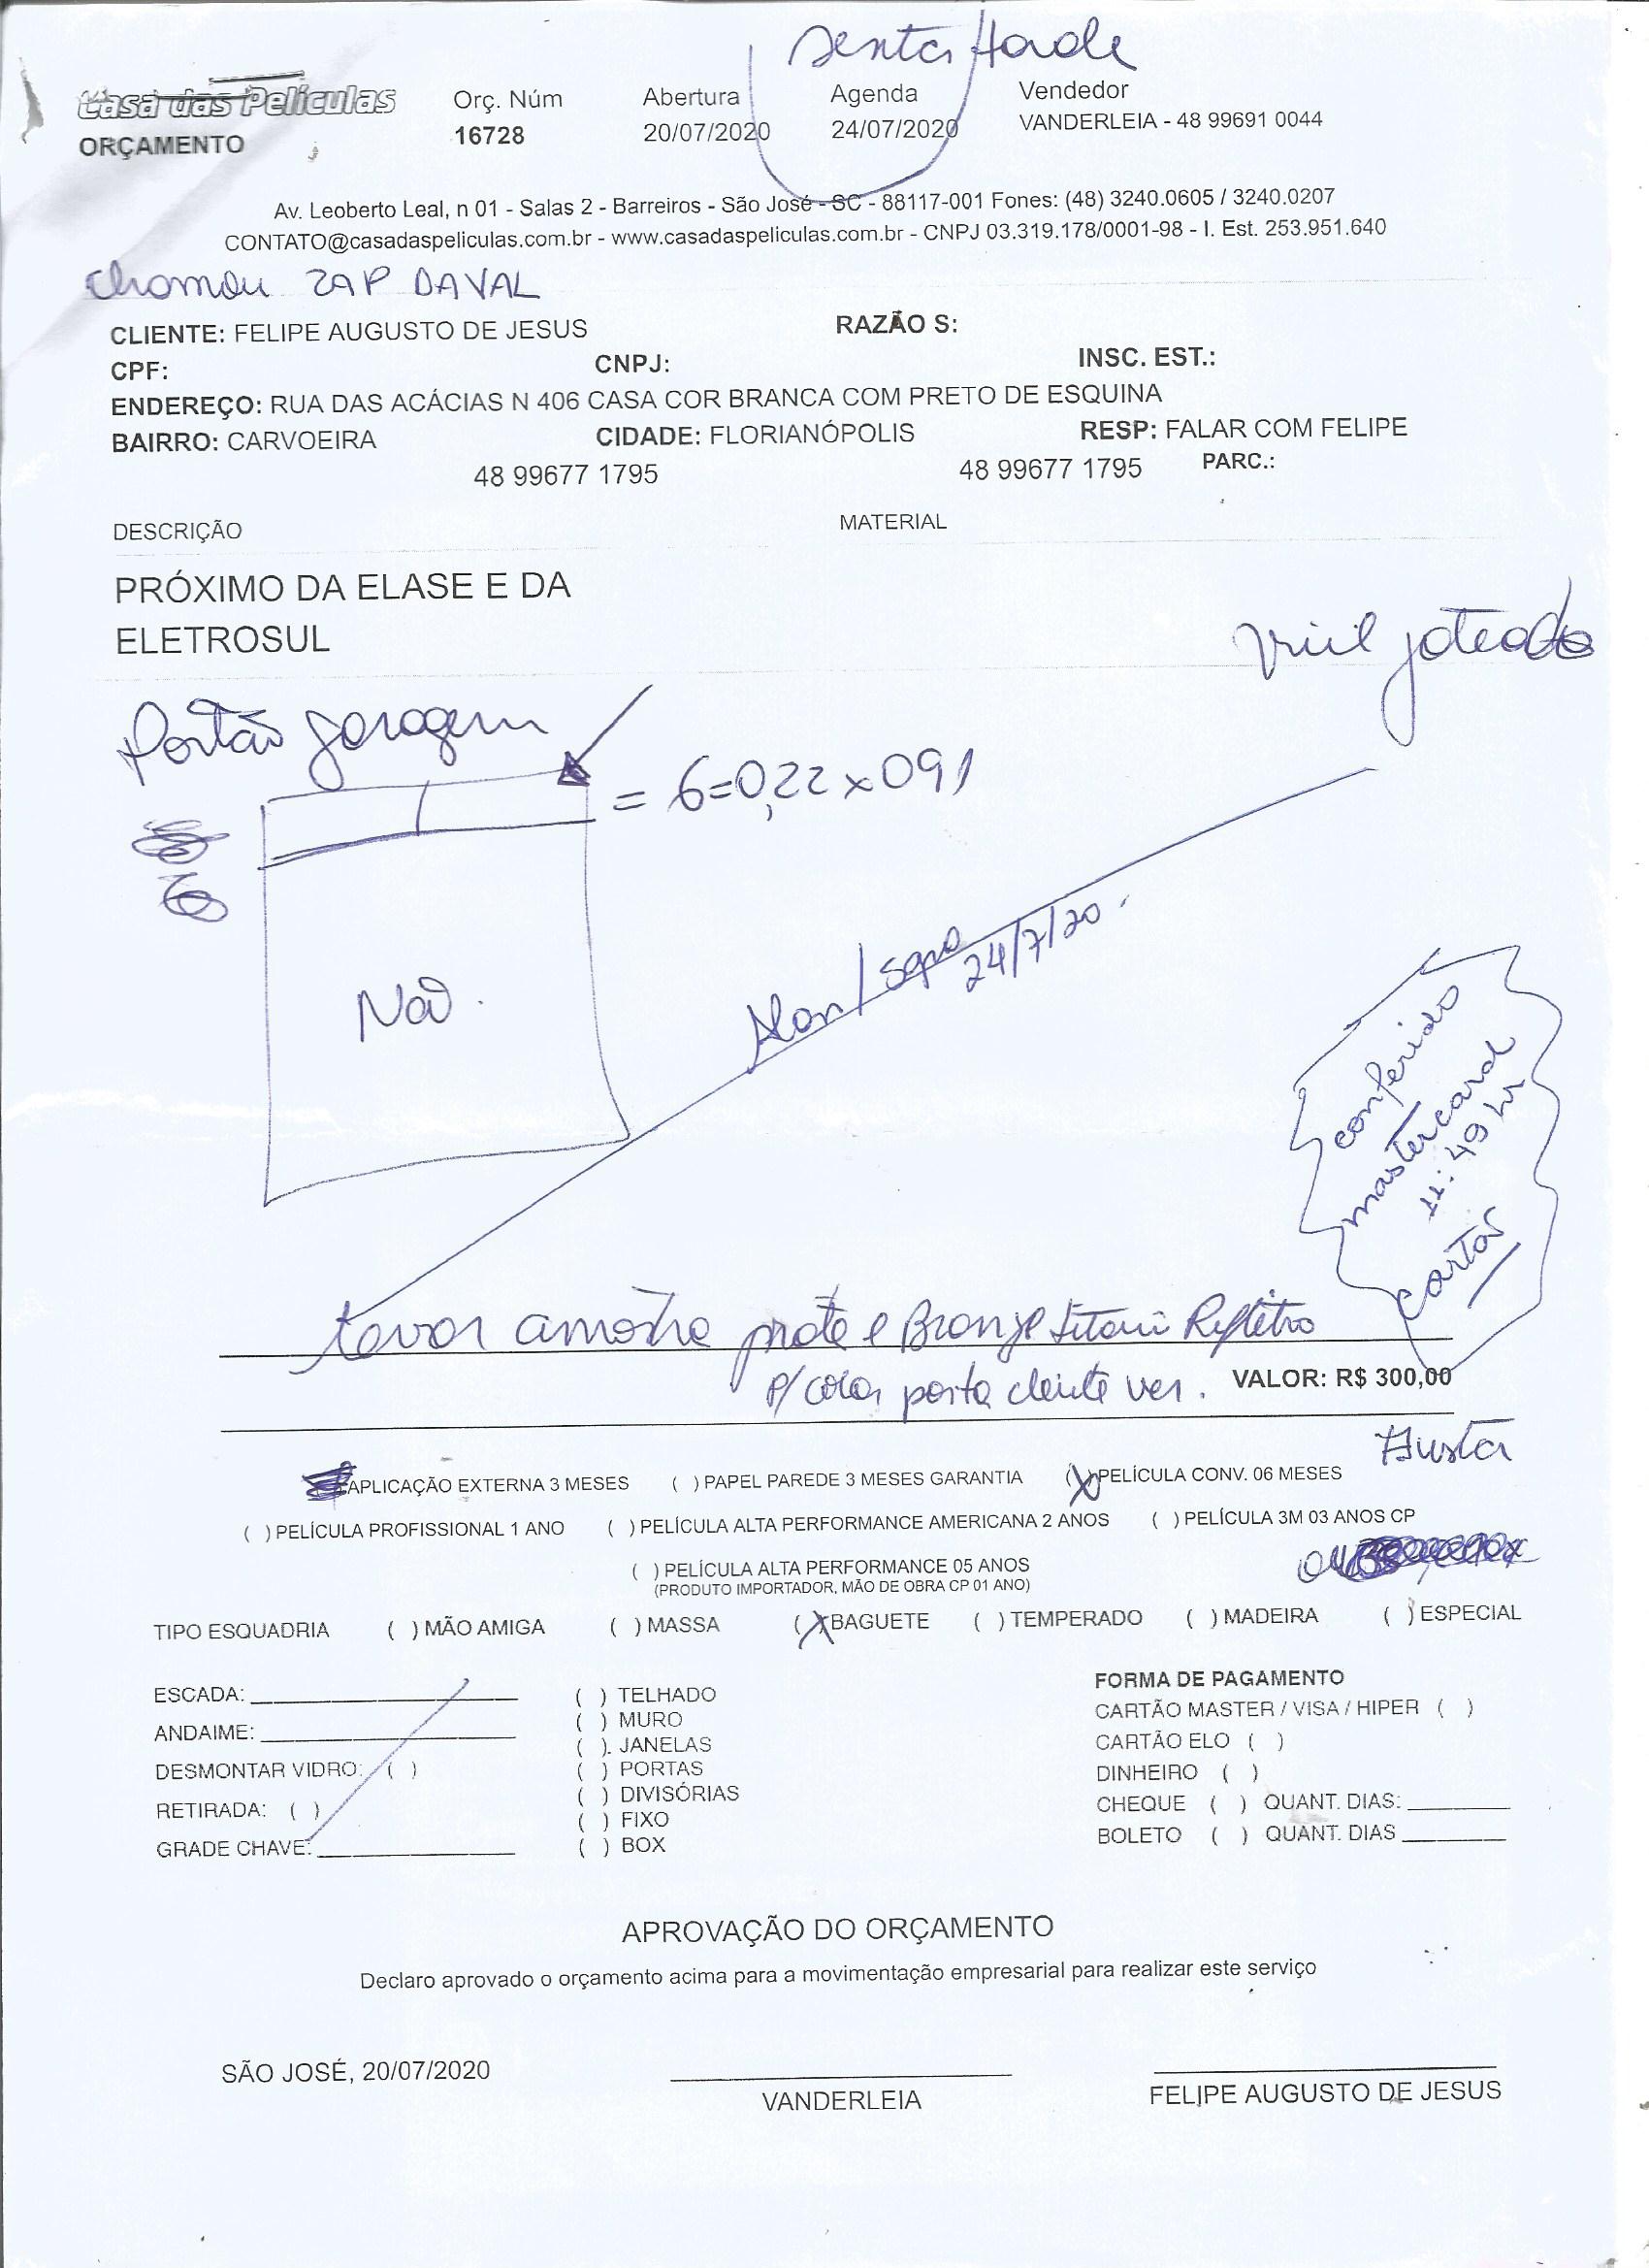 Sexta Tarde
Casa das Películas
ORÇAMENTO
Orç. Núm
16728
Abertura
20/07/2020
Agenda
24/07/2020
Vendedor
VANDERLEIA - 48 99691 0044
Av. Leoberto Leal, n 01 - Salas 2 - Barreiros - São José - SC - 88117-001 Fones: (48) 3240.0605 / 3240.0207
CONTATO@casadaspeliculas.com.br - www.casadaspeliculas.com.br - CNPJ 03.319.178/0001-98 - I. Est. 253.951.640
Chamou ZAP DAVAL
CLIENTE: FELIPE AUGUSTO DE JESUS RAZÃO S:
CPF: CNPJ: INSC. EST.:
ENDEREÇO: RUA DAS ACÁCIAS N 406 CASA COR BRANCA COM PRETO DE ESQUINA
BAIRRO: CARVOEIRA CIDADE: FLORIANÓPOLIS RESP: FALAR COM FELIPE
48 99677 1795 48 99677 1795 PARC.:
DESCRIÇÃO MATERIAL
PRÓXIMO DA ELASE E DA
ELETROSUL
Vinil jateado
Portão garagem
= 6=0,22 x 091
Não.
24/7/20
conferido
mastercard
11:49 hr
cartão
Levar amostra prata e Bronze Refletivo
p/ colar porta cliente ver. VALOR: R$ 300,00
APLICAÇÃO EXTERNA 3 MESES ( ) PAPEL PAREDE 3 MESES GARANTIA (X) PELÍCULA CONV. 06 MESES
( ) PELÍCULA PROFISSIONAL 1 ANO ( ) PELÍCULA ALTA PERFORMANCE AMERICANA 2 ANOS ( ) PELÍCULA 3M 03 ANOS CP
( ) PELÍCULA ALTA PERFORMANCE 05 ANOS
(PRODUTO IMPORTADOR, MÃO DE OBRA CP 01 ANO)
TIPO ESQUADRIA ( ) MÃO AMIGA ( ) MASSA (X) BAGUETE ( ) TEMPERADO ( ) MADEIRA ( ) ESPECIAL
ESCADA:
ANDAIME:
DESMONTAR VIDRO: ( )
RETIRADA: ( )
GRADE CHAVE:
( ) TELHADO
( ) MURO
( ). JANELAS
( ) PORTAS
( ) DIVISÓRIAS
( ) FIXO
( ) BOX
FORMA DE PAGAMENTO
CARTÃO MASTER / VISA / HIPER ( )
CARTÃO ELO ( )
DINHEIRO ( )
CHEQUE ( ) QUANT. DIAS:
BOLETO ( ) QUANT. DIAS
APROVAÇÃO DO ORÇAMENTO
Declaro aprovado o orçamento acima para a movimentação empresarial para realizar este serviço
SÃO JOSÉ, 20/07/2020
VANDERLEIA
FELIPE AUGUSTO DE JESUS